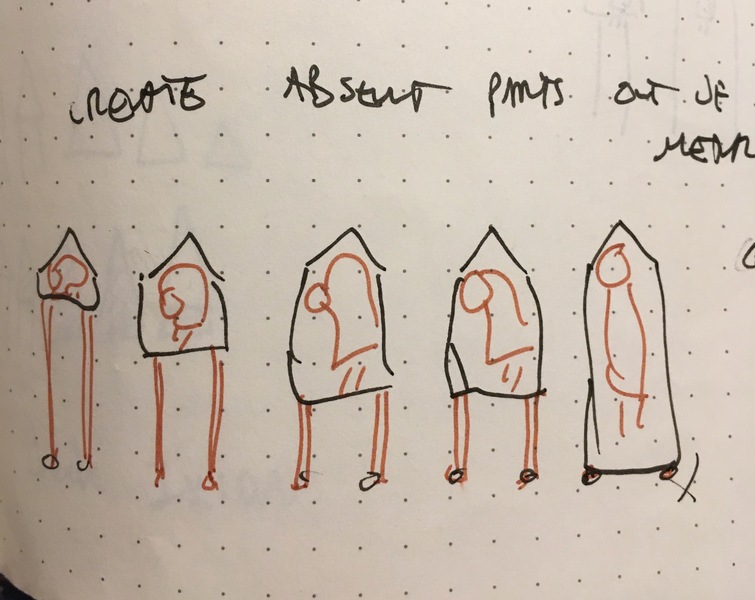 CREATE ABSENT PARTS OUT OF